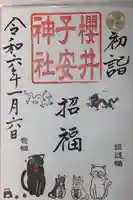 初詣
櫻井
子安
神社
招福
令和六年一月六日